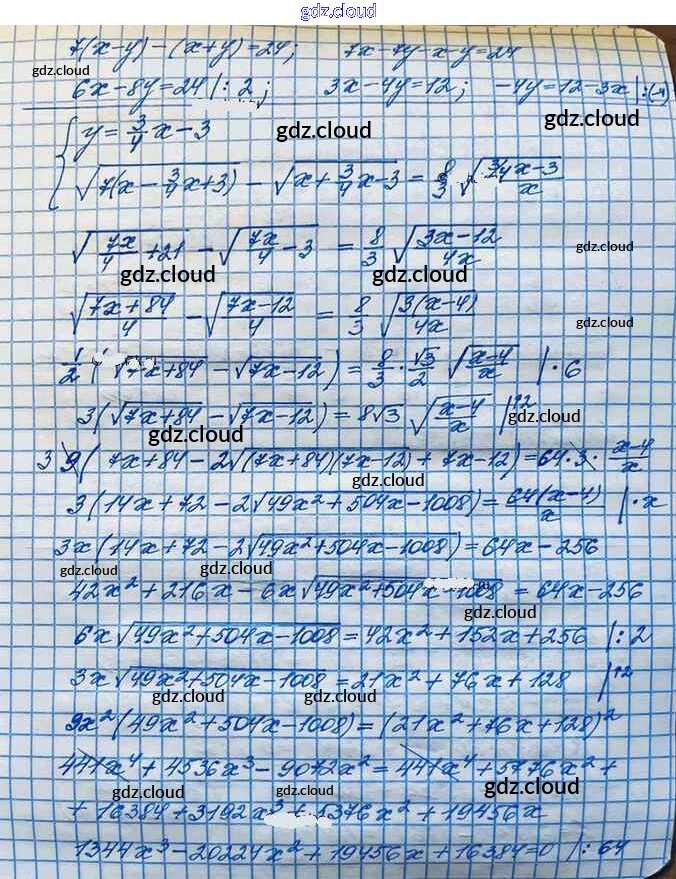 gdz.cloud
7(x-y)-(x+y)=24; 7x-7y-x-y=24
gdz.cloud
6x-8y=24 |:2; 3x-4y=12; -4y=12-3x |:(-4)
gdz.cloud gdz.cloud
{ y=3/4x-3
√(7(x-3/4x+3)) - √(x+3/4x-3) = 8/3 √((3/4x-3)/x)
√(7x/4+21) - √(7x/4-3) = 8/3 √((3x-12)/4x)
gdz.cloud
gdz.cloud gdz.cloud
√((7x+84)/4) - √((7x-12)/4) = 8/3 √(3(x-4)/4x)
gdz.cloud
1/2(√(7x+84) - √(7x-12)) = 8/3 · √3/2 √((x-4)/x) |·6
3(√(7x+84) - √(7x-12)) = 8√3 √((x-4)/x) |↑2
gdz.cloud gdz.cloud
3 9(7x+84-2√((7x+84)(7x-12))+7x-12)=64·3·(x-4)/x
gdz.cloud
3(14x+72-2√(49x²+504x-1008))=64(x-4)/x |·x
3x(14x+72-2√(49x²+504x-1008))=64x-256
gdz.cloud gdz.cloud
42x²+216x-6x√(49x²+504x-1008)=64x-256
gdz.cloud
6x√(49x²+504x-1008)=42x²+152x+256 |:2
3x√(49x²+504x-1008)=21x²+76x+128 |↑2
gdz.cloud gdz.cloud
9x²(49x²+504x-1008)=(21x²+76x+128)²
441x⁴+4536x³-9072x²=441x⁴+5776x²+
gdz.cloud gdz.cloud
+16384+3192x³+5376x²+19456x
1344x³-20224x²+19456x+16384=0 |:64